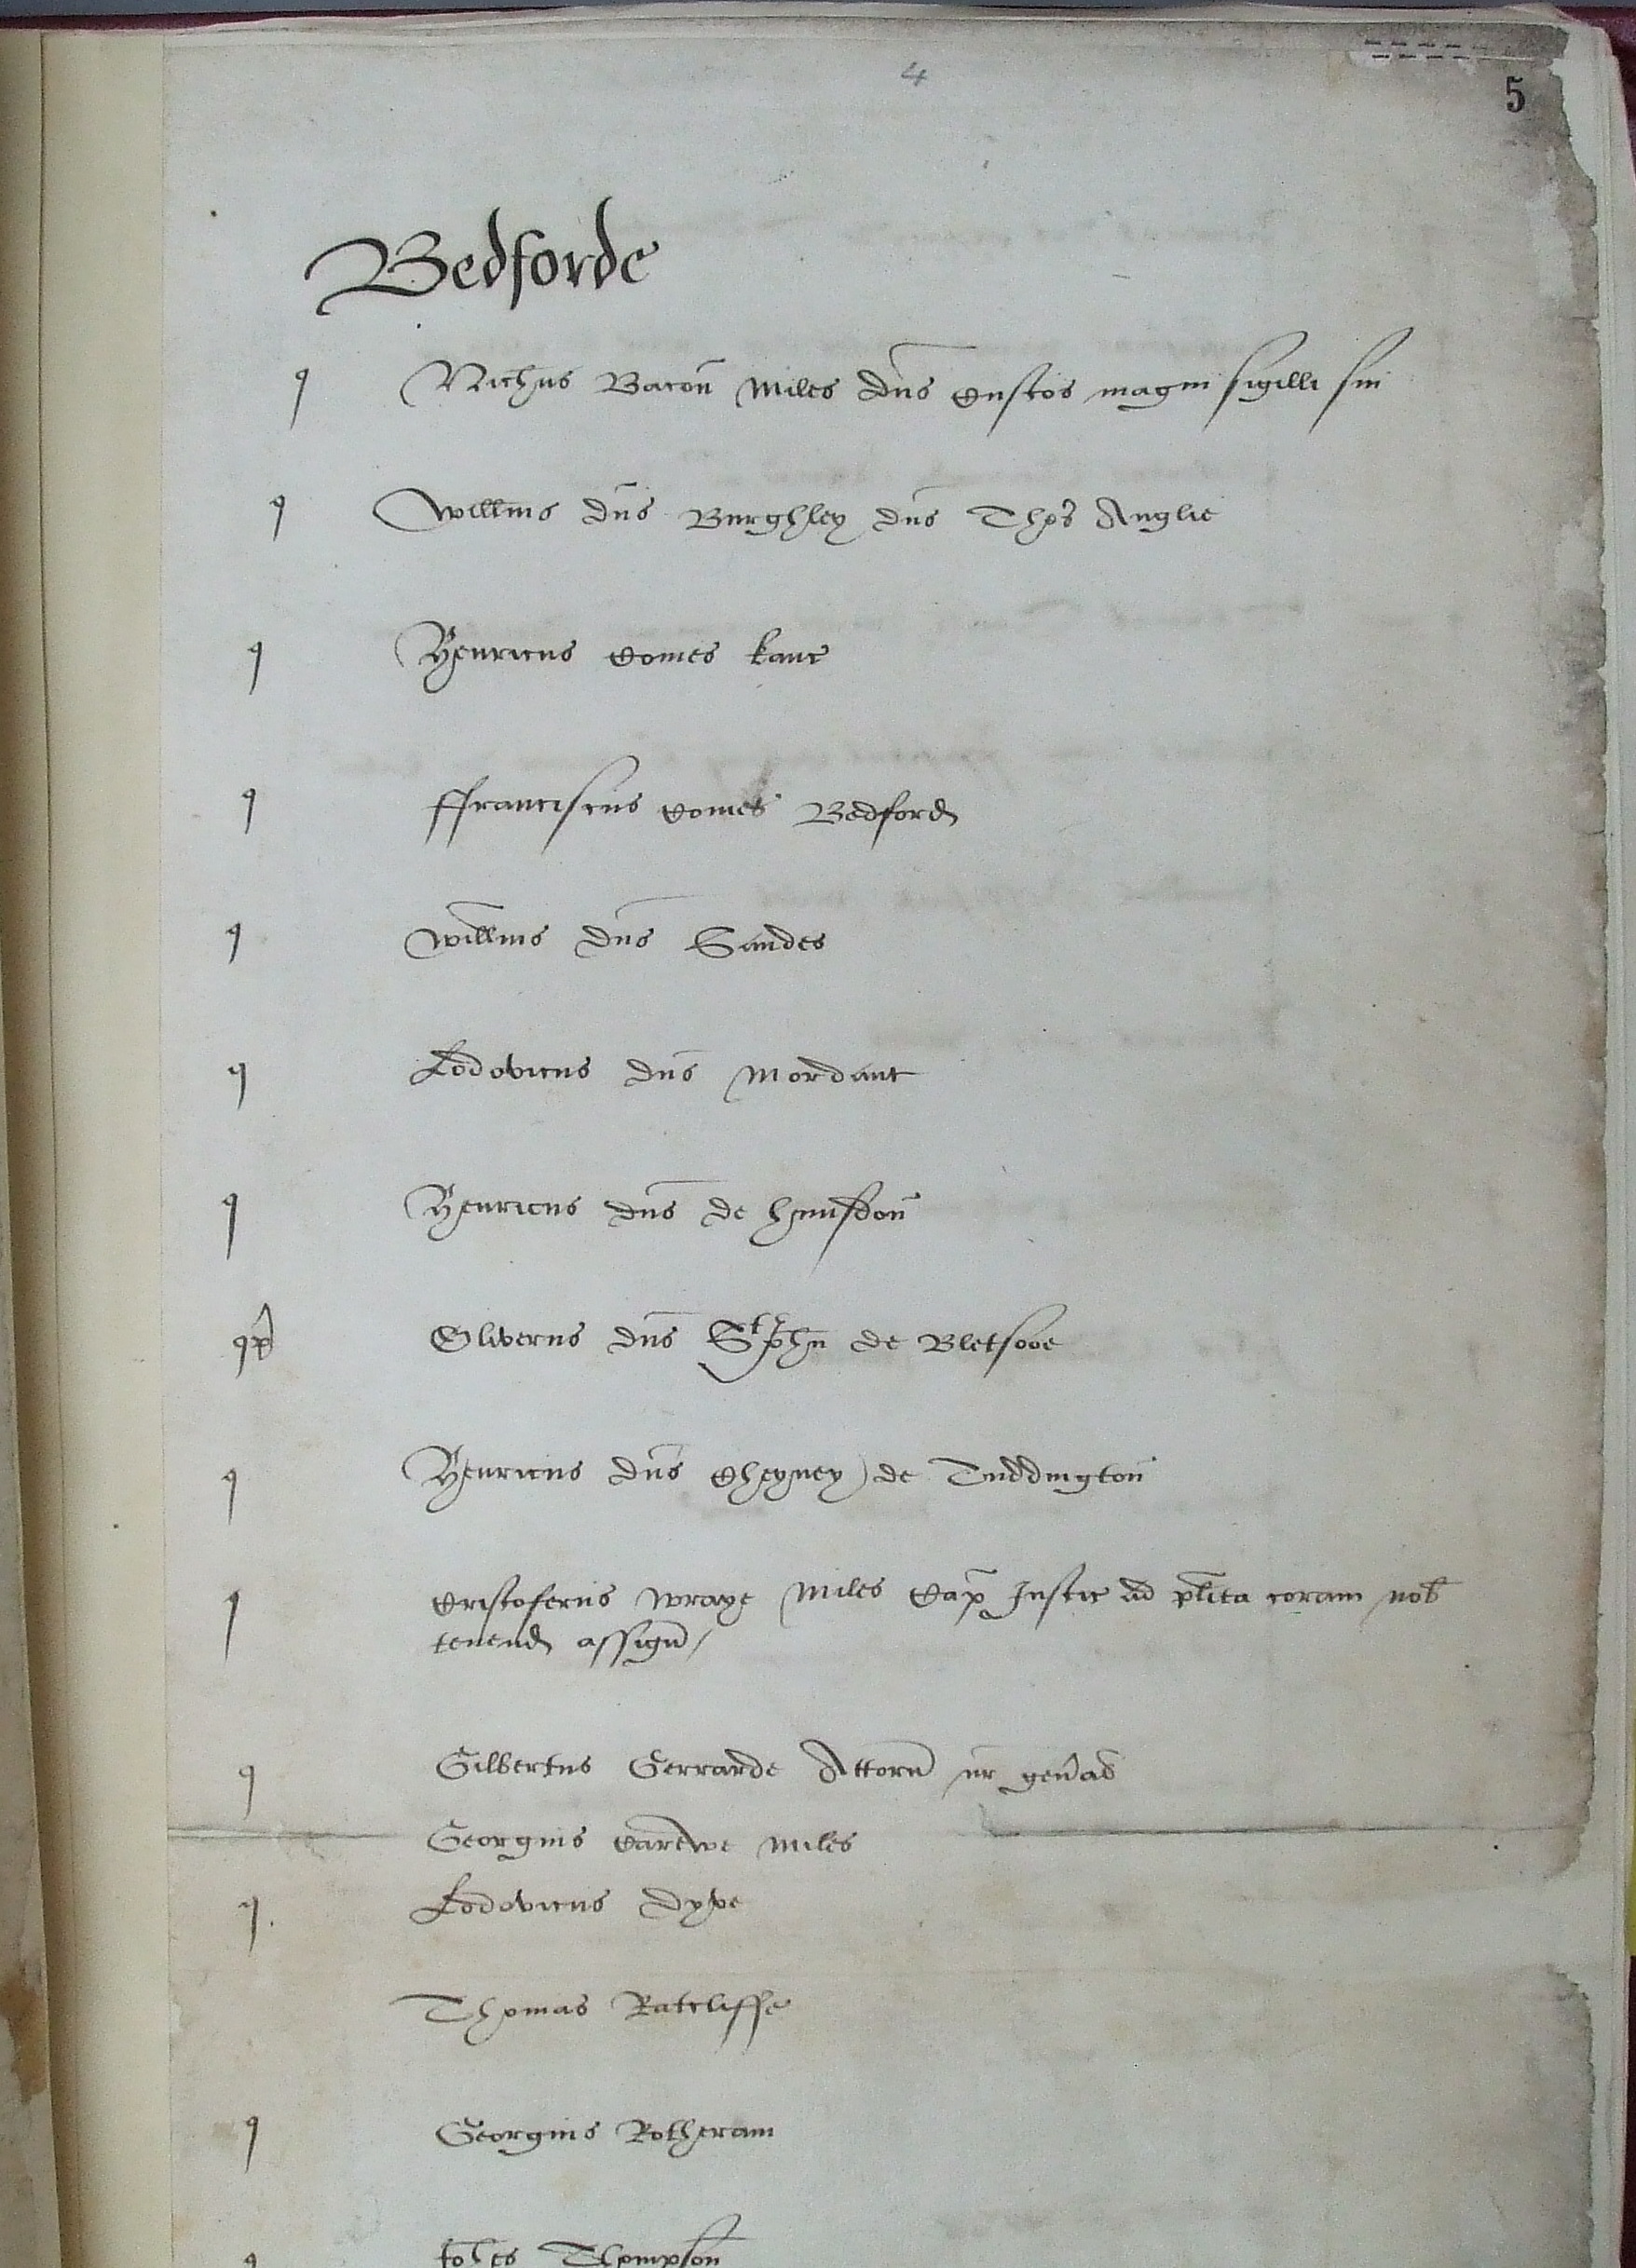 4
5
Bedforde
q Nichus Bacon Miles dns Custos magni sigilli sui
q Willms dns Burghley dns Thes Anglie
q Henricus Comes Kanc
q ffranciscus Comes Bedford
q Willms dns Sandes
q Lodovicus dns Mordant
q Henricus dns de hunsdon
q Oliverus dns St John de Bletsooe
q Henricus dns Cheyney de Tuddington
q Cristoferus Wraye Miles Cap Justic ad plita coram nob
tenend assign
q Gilbertus Gerrarde Attorn nr genad
Georgius Carewe Miles
q Lodovicus Dyve
Thomas Ratcliffe
q Georgius Rotheram
q Johes Thompson